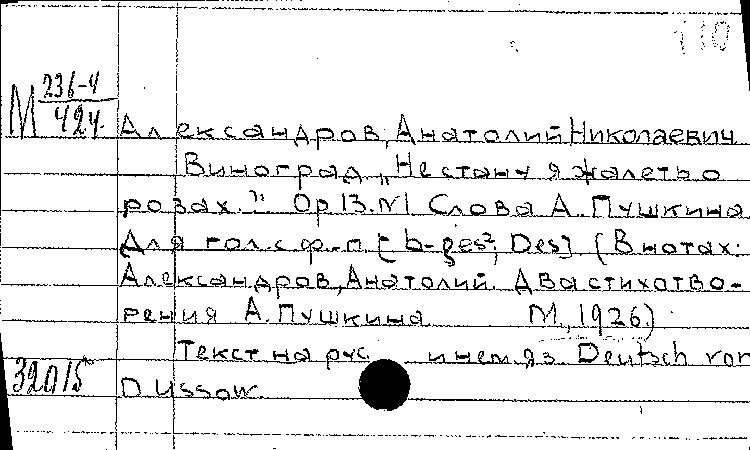 110
М 236-4
424.
Александров, Анатолий Николаевич
Виноград „Не стану я жалеть о
розах." Op.13.N1 Слова А. Пушкина
Для гол. с ф.-п. [b-ges²; Des] (В нотах:
Александров, Анатолий. Два стихотво-
рения А. Пушкина М., 1926.)
Текст на рус. и нем. яз. Deutsch von
D. Ussow.